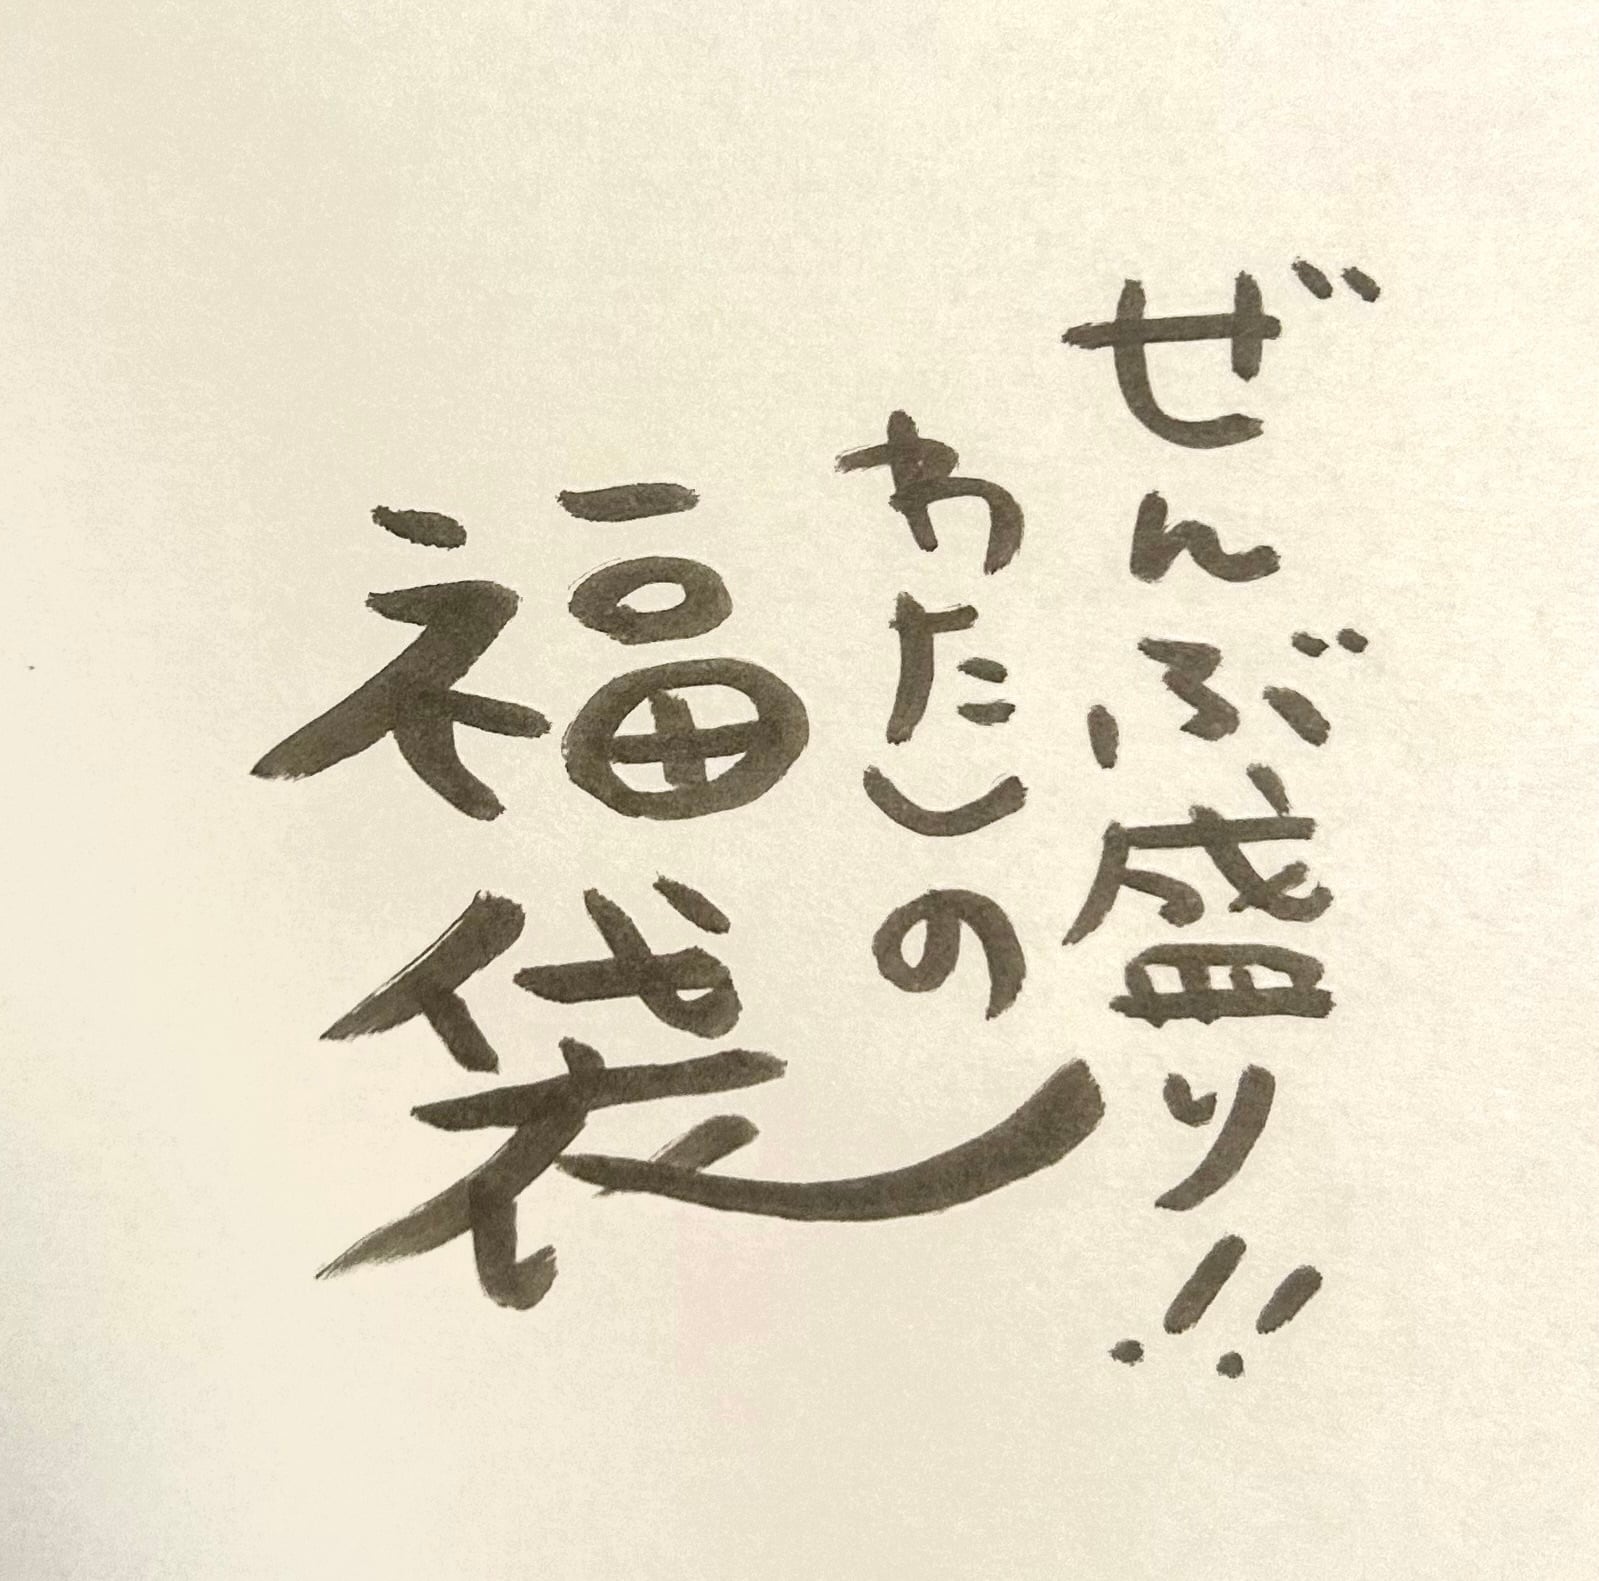 ぜんぶ盛り!!
わたしの
福袋